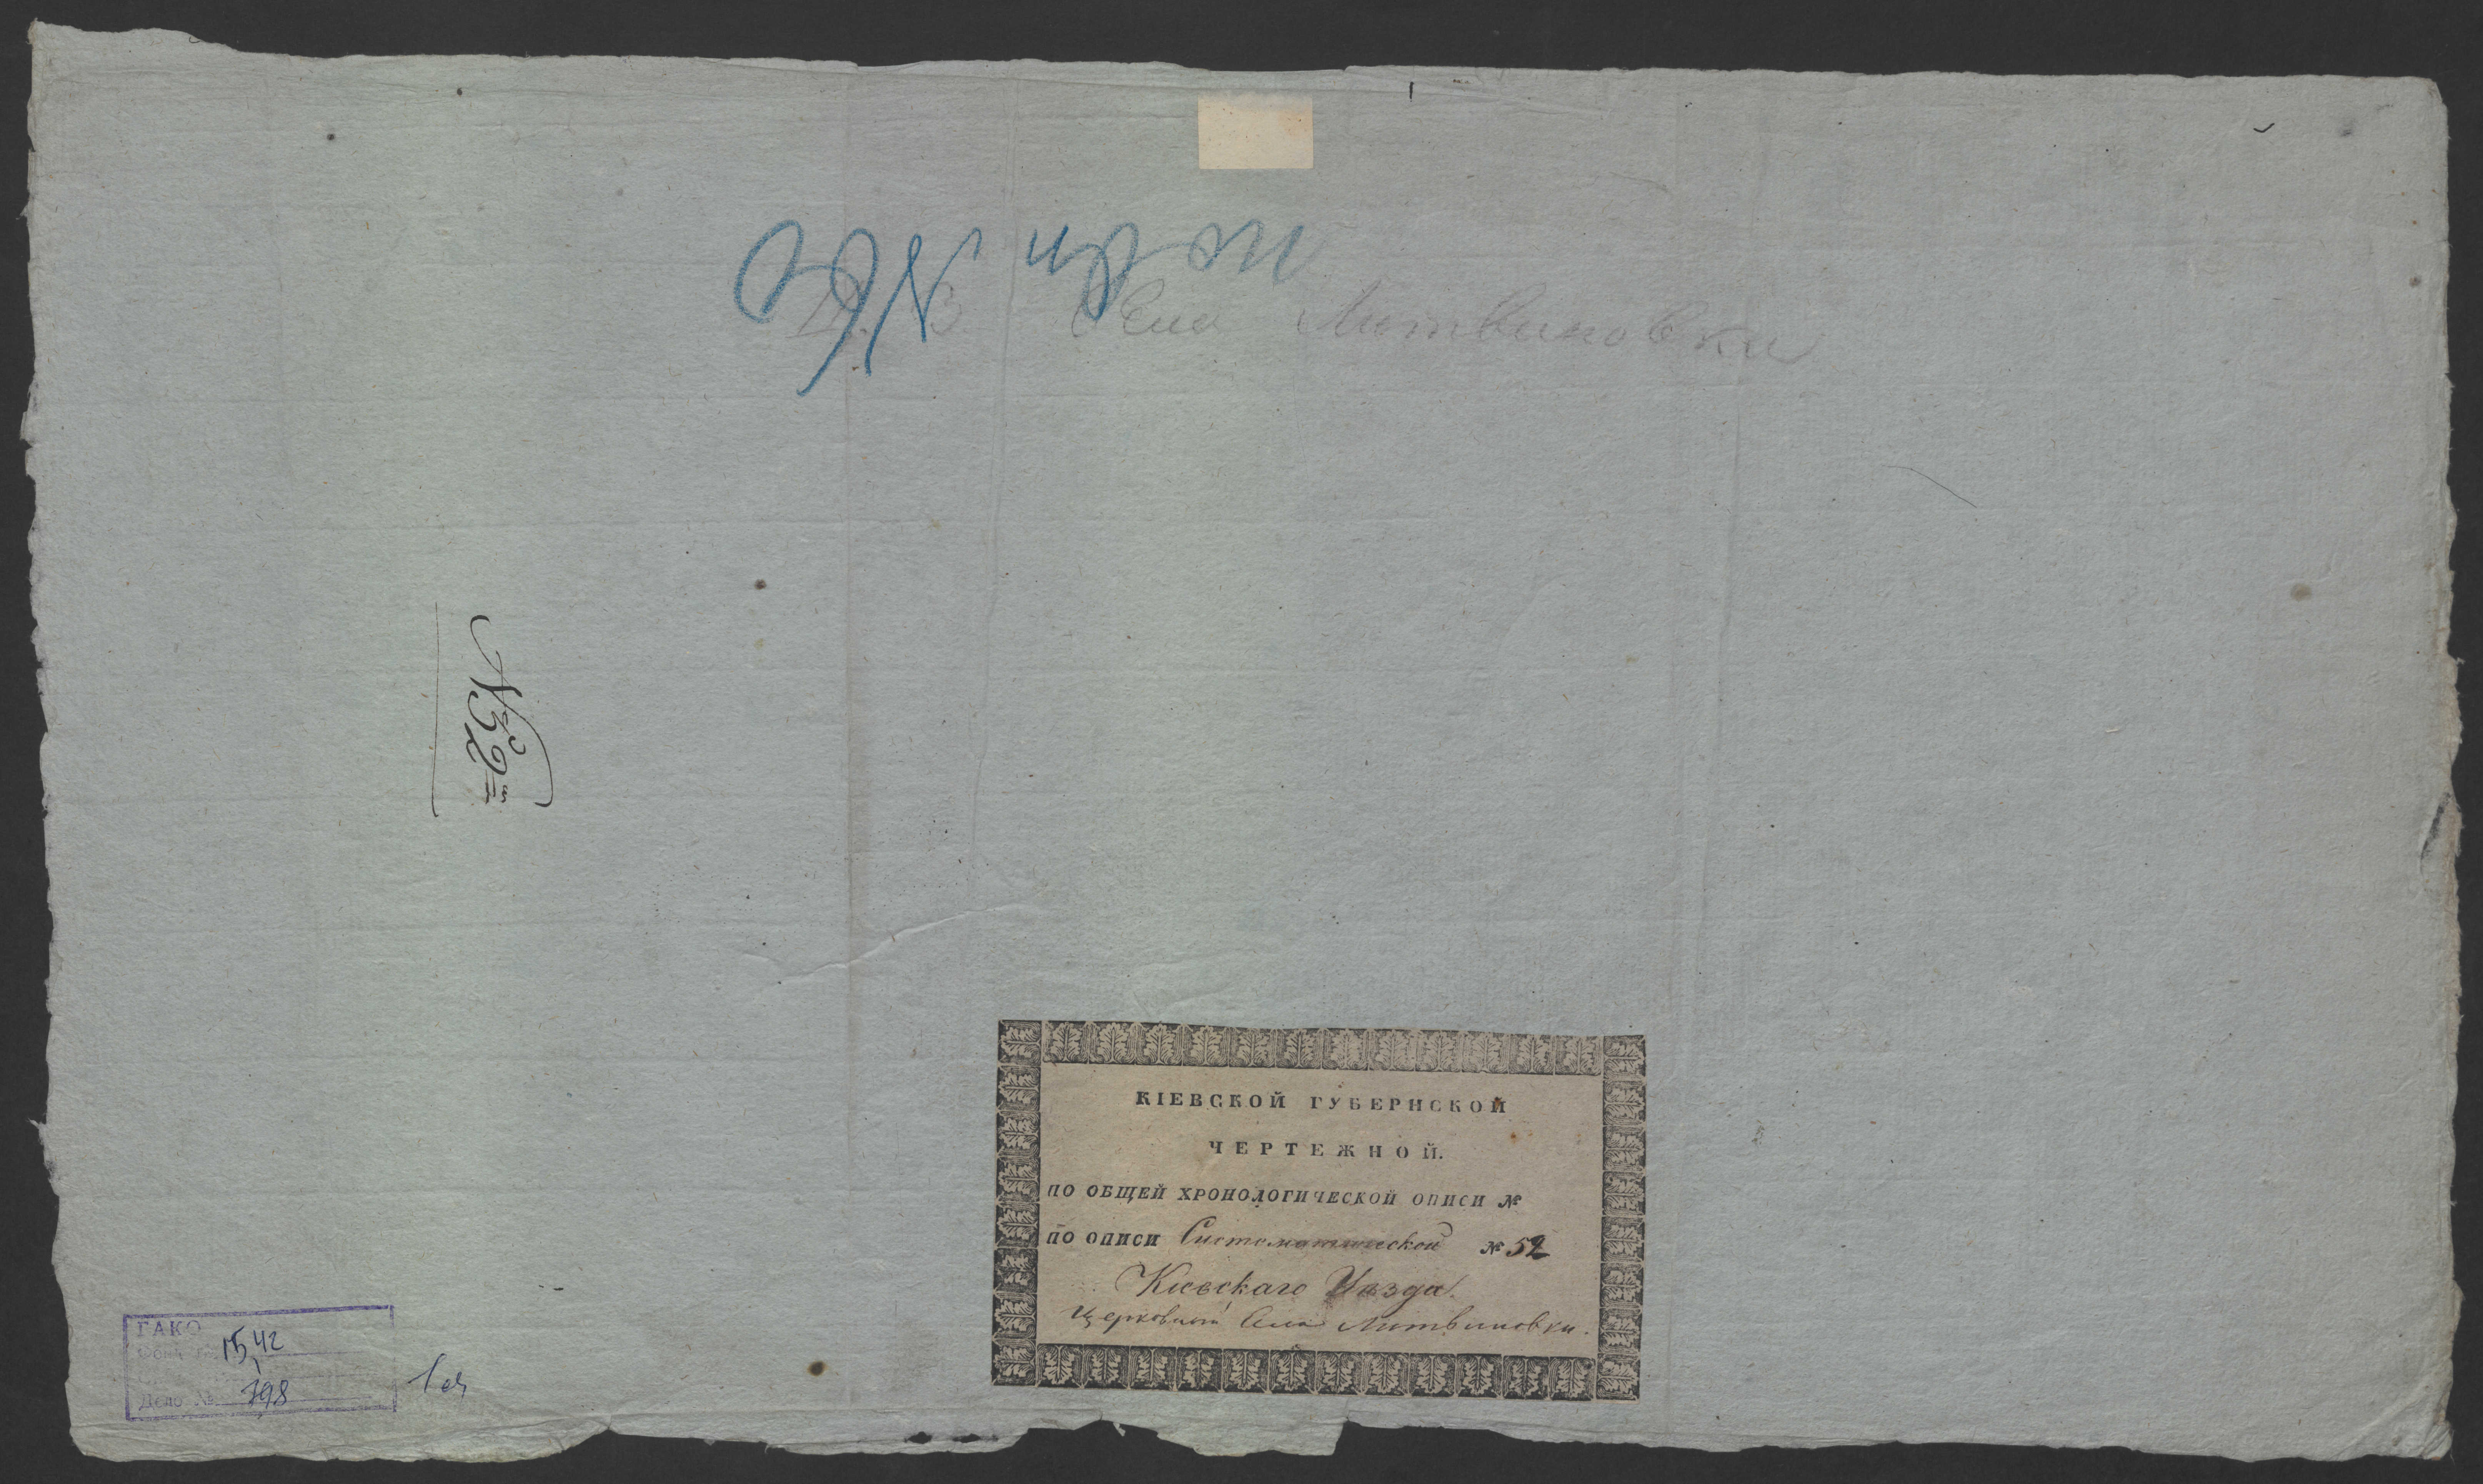 Села Литвиновки
№ 32
КІЕВСКОЙ ГУБЕРНСКОЙ
ЧЕРТЕЖНОЙ.
ПО ОБЩЕЙ ХРОНОЛОГИЧЕСКОЙ ОПИСИ №
ПО ОПИСИ Систематической № 52
Кіевскаго Уезда.
Церковный Села Литвиновки.
ГАКО
Фонд № 1542
1
Дело № 798